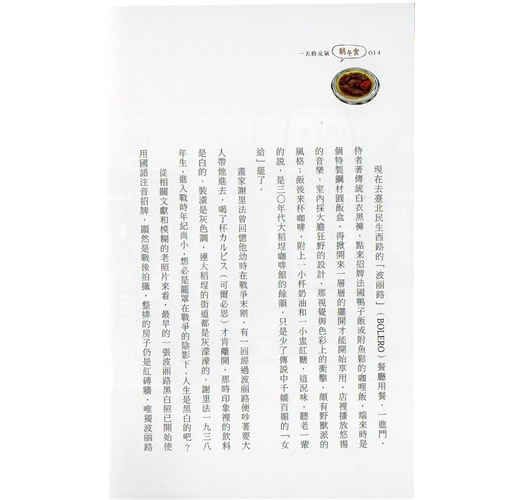 一天的元氣 朝午食 014
現在去臺北民生西路的「波麗路」（BOLERO）餐廳用餐，一進門，
侍者著傳統白衣黑褲，點來招牌法國鴨子飯或附魚鬆的咖哩飯，端來時是
個特製鋼材圓飯盒，得掀開來一層層的攤開才能開始享用，店裡播放悠揚
的音樂，室內採大膽狂野的設計，那視覺與色彩上的衝擊，頗有野獸派的
風格；飯後來杯咖啡，附上一小杯奶油和一小盅紅糖，這況味，聽老一輩
的說，是三〇年代大稻埕咖啡館的餘韻，只是少了傳說中千嬌百媚的「女
給」罷了。
畫家謝里法曾回憶他幼時在戰爭末期，有一回經過波麗路便吵著要大
人帶他進去，喝了杯カルピス（可爾必思）才肯離開，那時印象裡的飲料
是白的、裝潢是灰色調，連大稻埕的街道都是灰濛濛的。謝里法一九三八
年生，進入戰時年紀尚小，想必是籠罩在戰爭的陰影下，人生是黑白的吧？
從相關文獻和模糊的老照片來看，最早的一張波麗路黑白照已開始使
用國語注音招牌，顯然是戰後拍攝，整排的房子仍是紅磚牆，唯獨波麗路